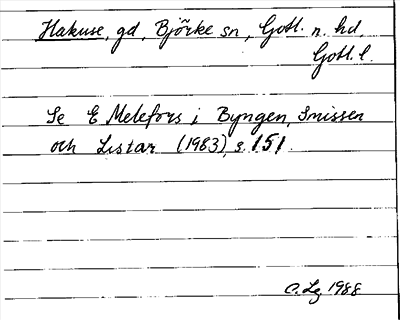 Hakuse, gd, Björke sn, Gotl. n. hd,
Gotl. l.
Se E Melefors i Byngen, Snissen
och Listar (1983), s. 151.
C. Lg 1988